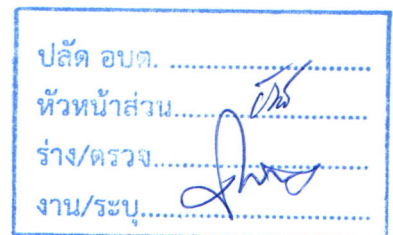 ปลัด อบต. ....................
หัวหน้าส่วน....................
ร่าง/ตรวจ....................
งาน/ระบุ....................